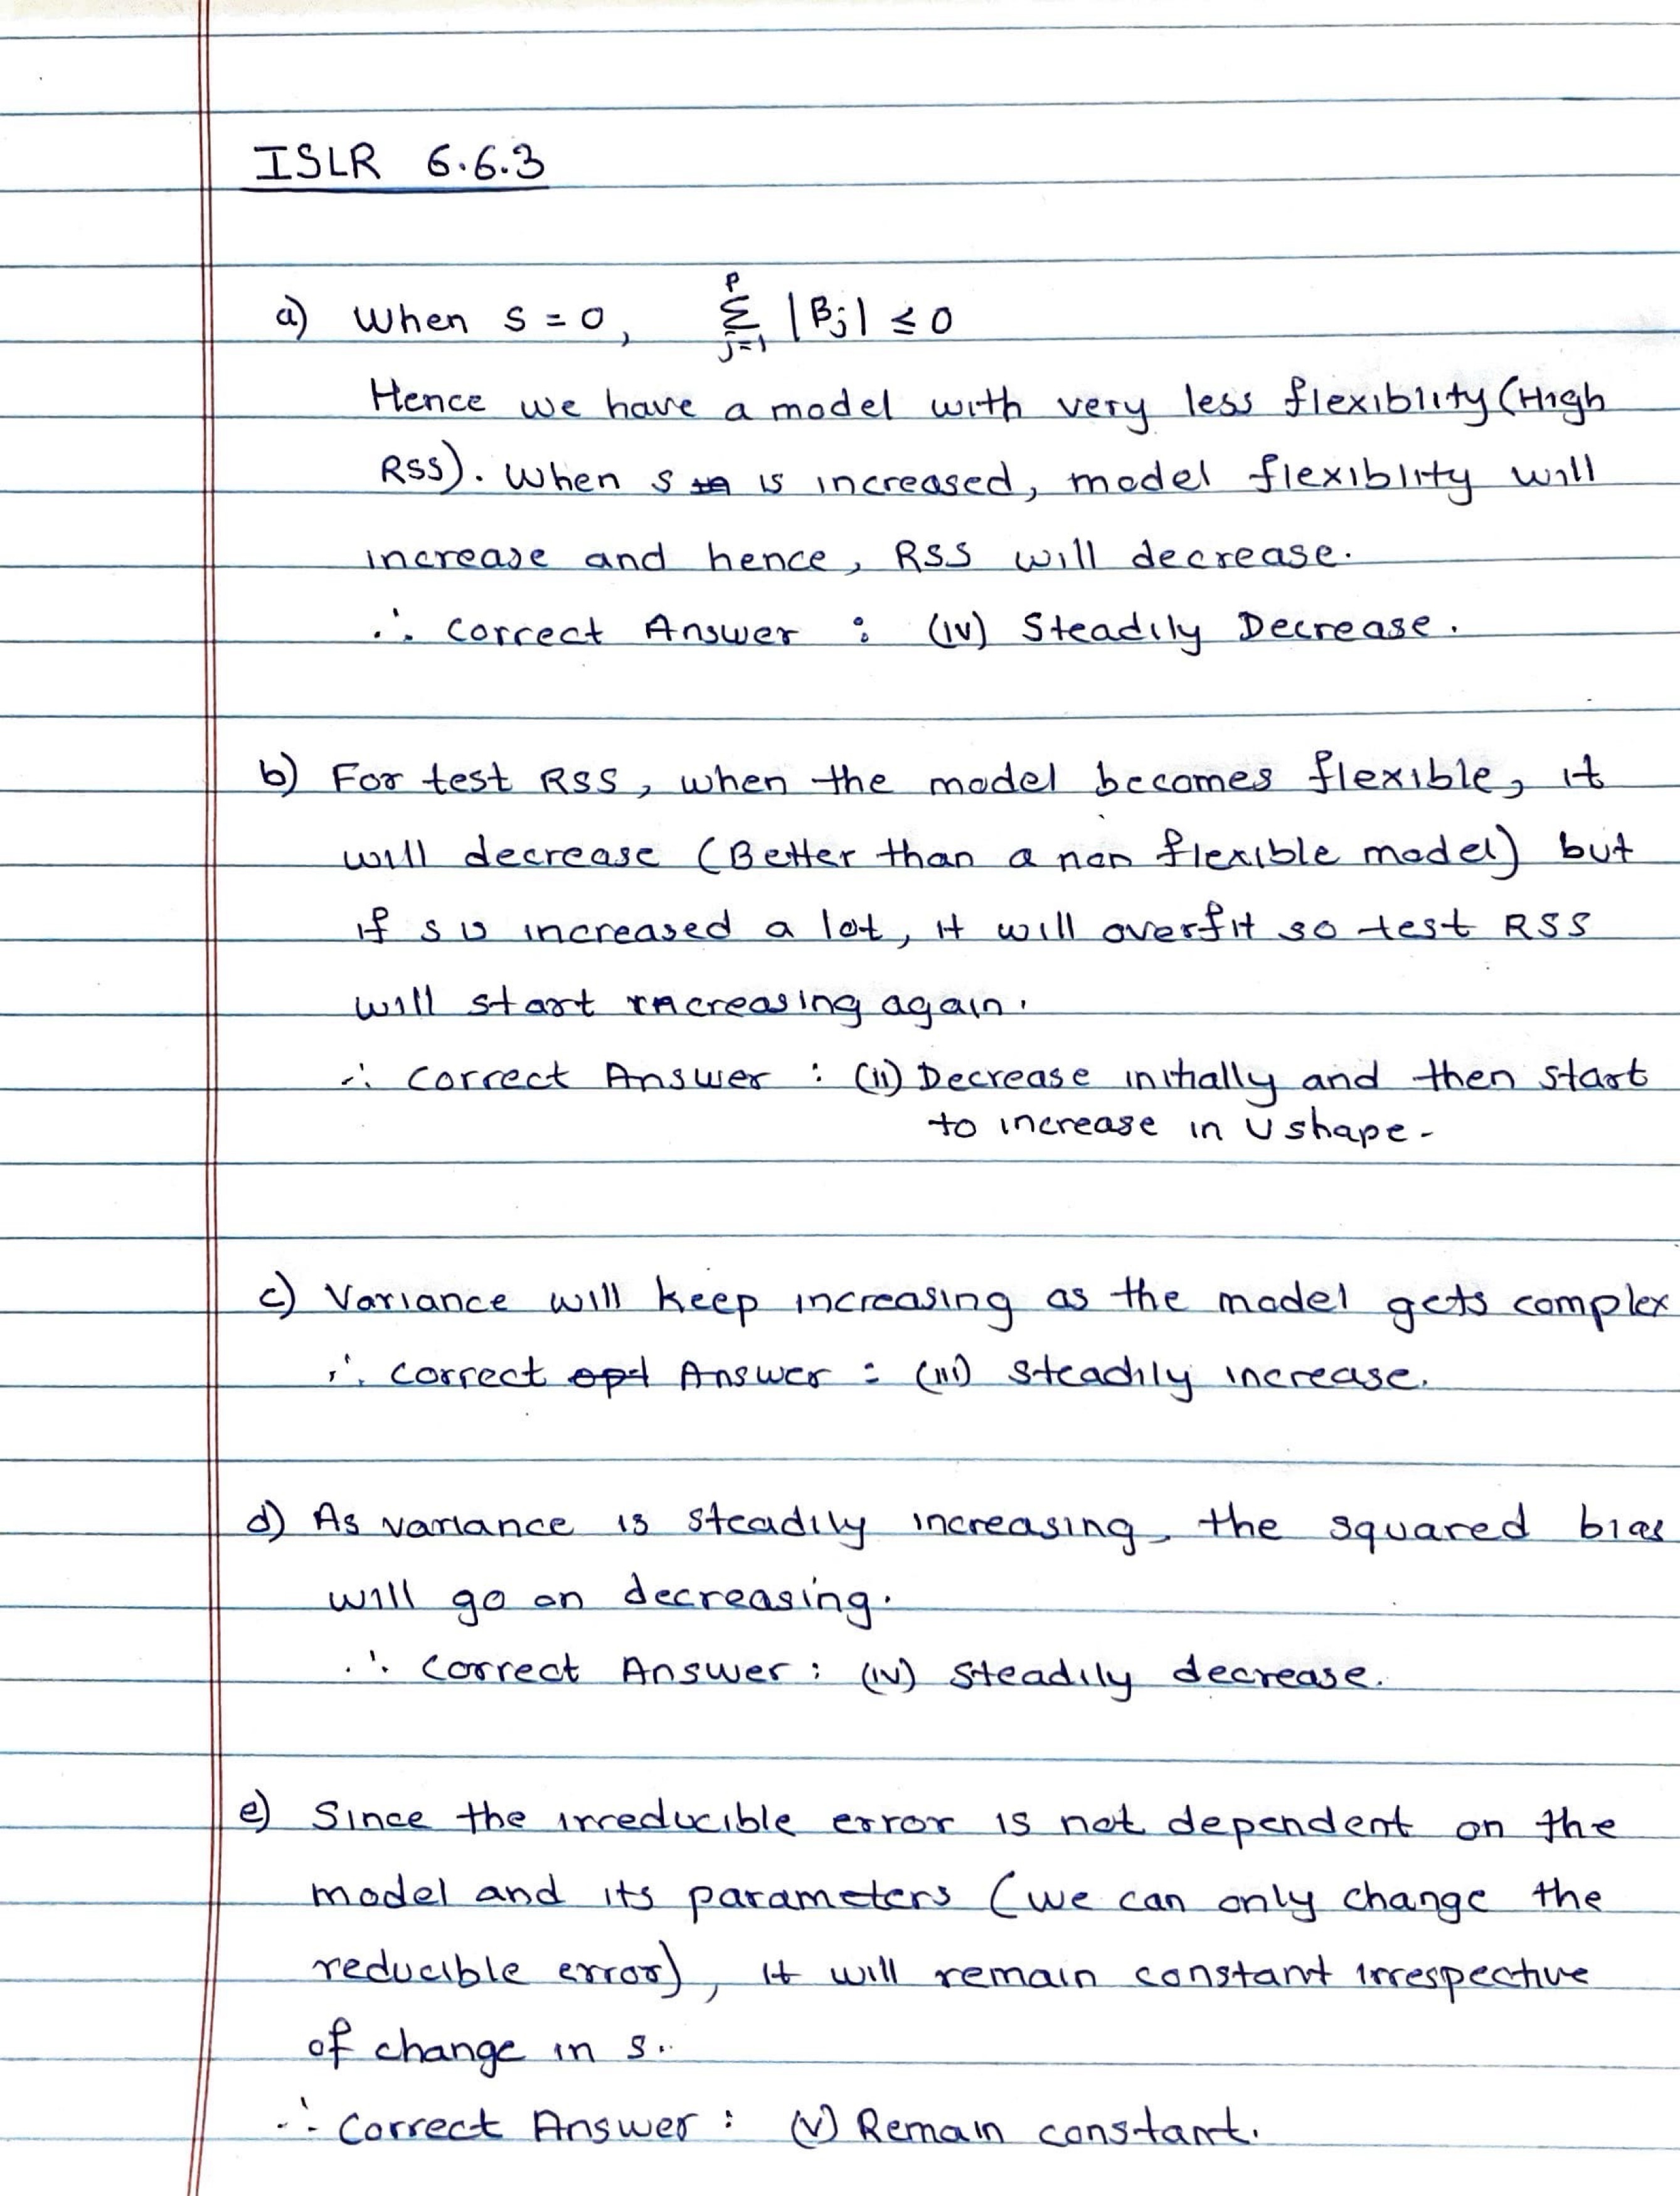 ISLR 6.6.3
a) When s = 0, $\sum_{j=1}^{p} |\beta_j| \leq 0$
Hence we have a model with very less flexiblity (High
RSS). When s is increased, model flexiblity will
increase and hence, RSS will decrease.
∴ Correct Answer : (iv) Steadily Decrease.
b) For test RSS, when the model becomes flexible, it
will decrease (Better than a non flexible model) but
if s is increased a lot, it will overfit so test RSS
will start increasing again.
∴ Correct Answer : (ii) Decrease initially and then start
to increase in U shape.
c) Variance will keep increasing as the model gets complex
∴ Correct opt Answer : (iii) Steadily increase.
d) As variance is steadily increasing, the squared bias
will go on decreasing.
∴ Correct Answer : (iv) Steadily decrease.
e) Since the irreducible error is not dependent on the
model and its parameters (we can only change the
reducible error), it will remain constant irrespective
of change in s.
∴ Correct Answer : (v) Remain constant.